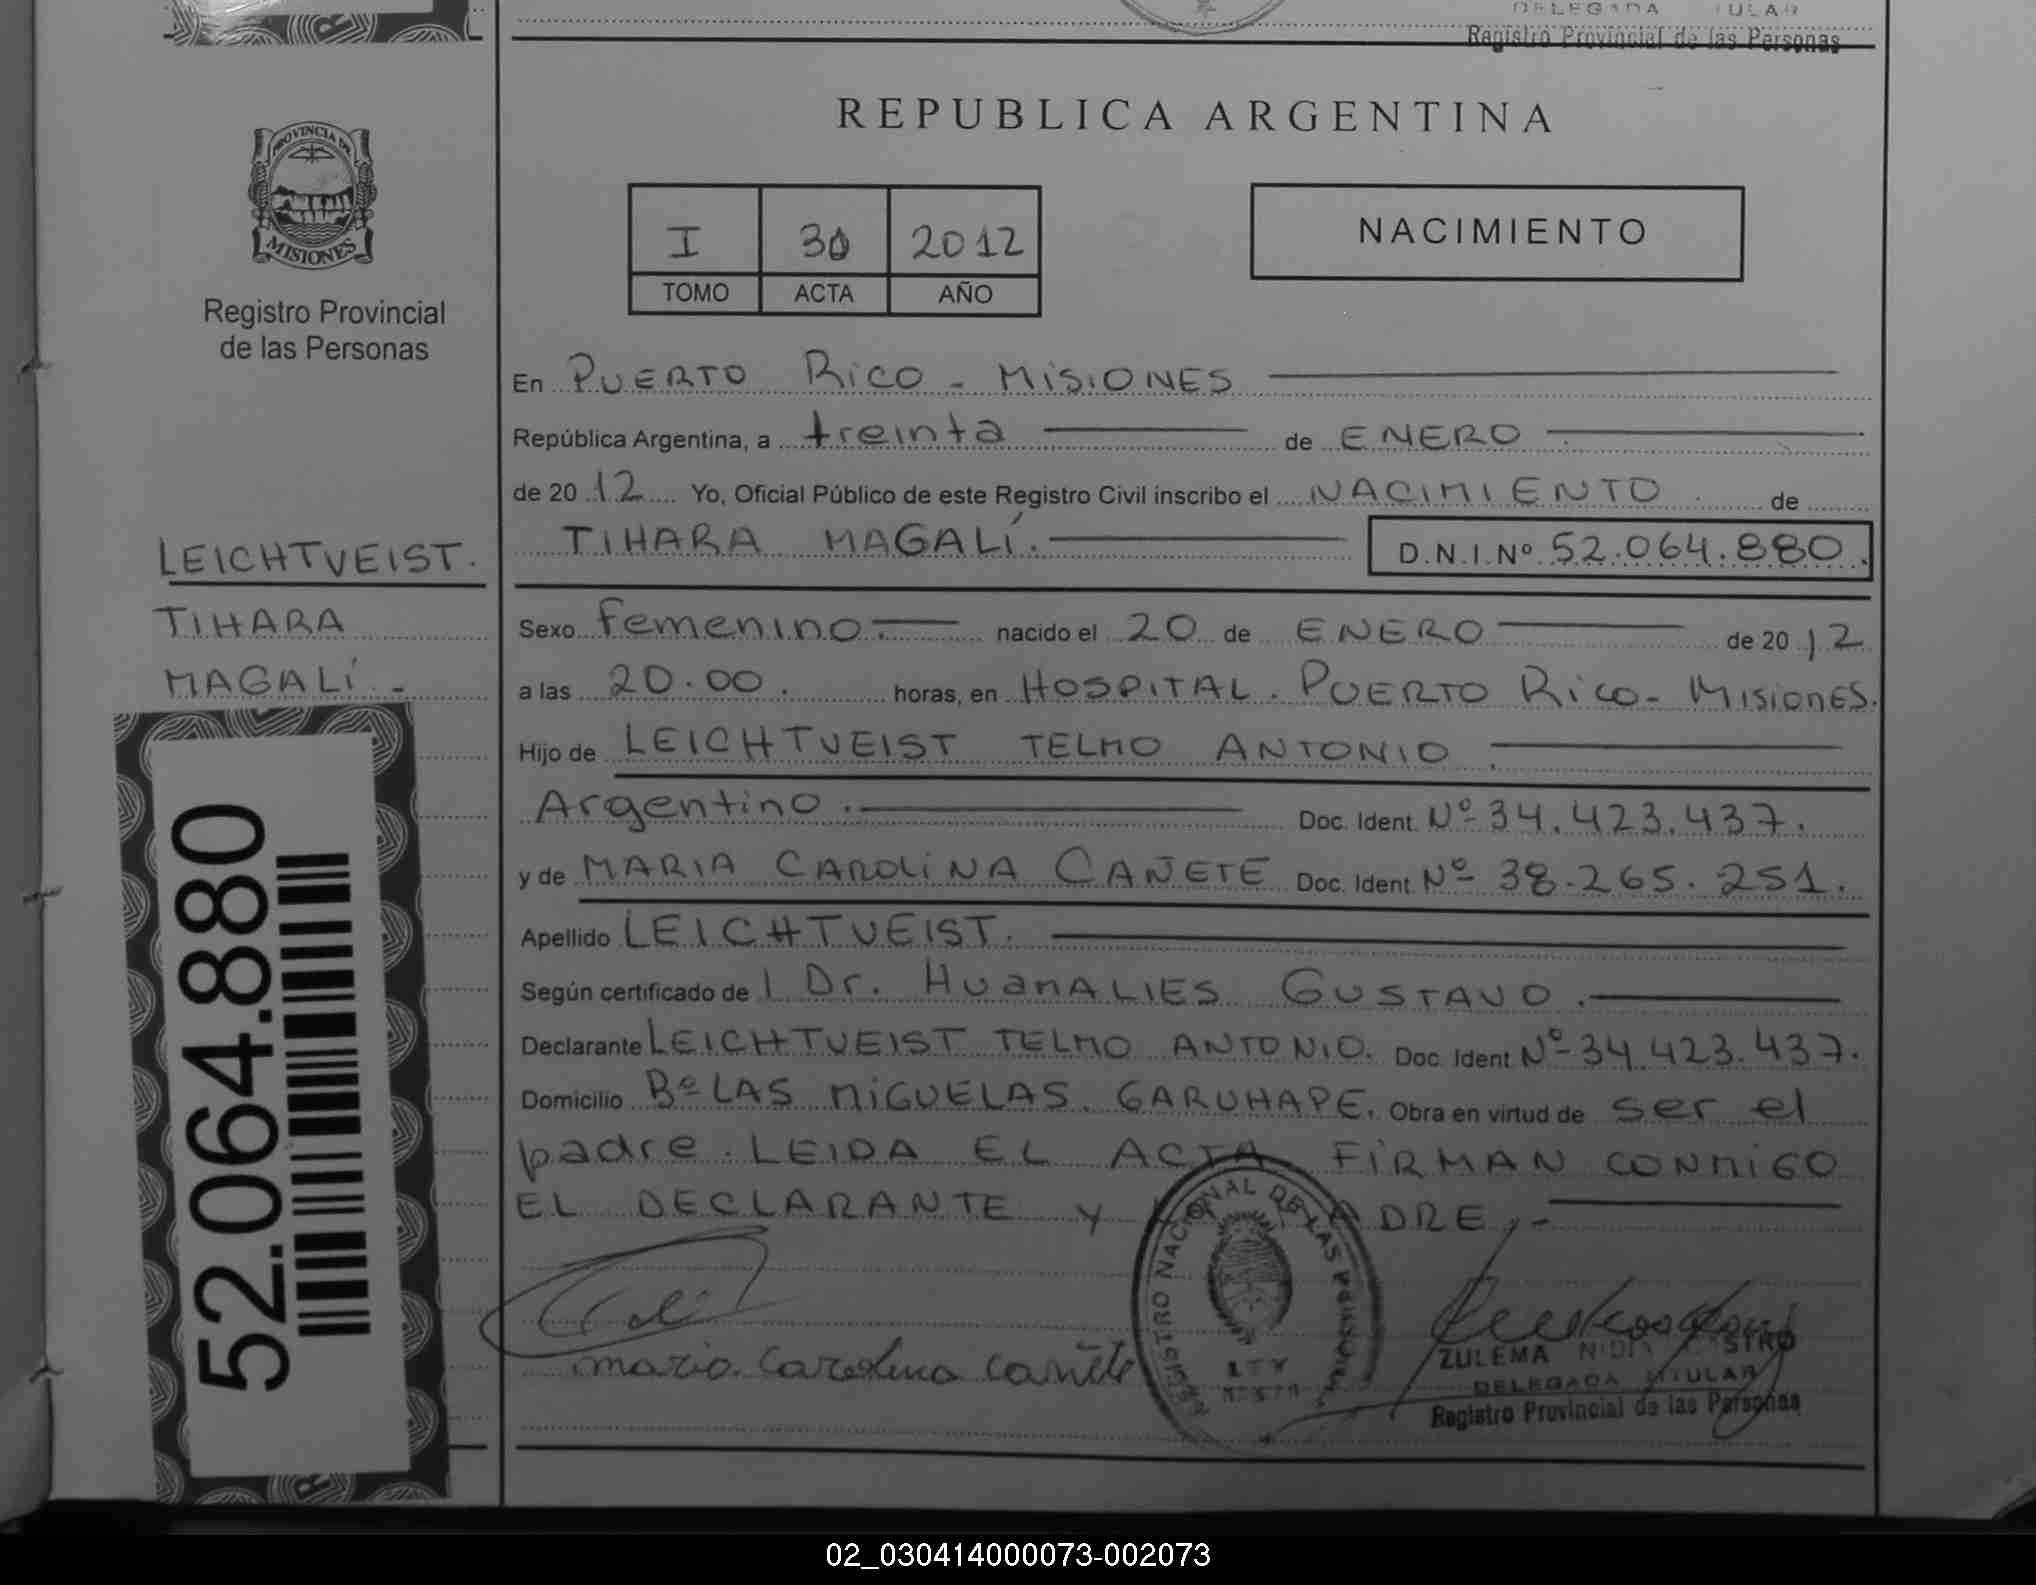 DELEGADA TITULAR
Registro Provincial de las Personas
REPUBLICA ARGENTINA
PROVINCIA DE
MISIONES
Registro Provincial
de las Personas
I 30 2012
TOMO ACTA AÑO
NACIMIENTO
En PUERTO RICO - MISIONES
República Argentina, a treinta de ENERO
de 2012 Yo, Oficial Público de este Registro Civil inscribo el NACIMIENTO de
TIHARA MAGALÍ. D.N.I.Nº 52.064.880.
LEICHTVEIST.
TIHARA
MAGALÍ.-
Sexo Femenino. nacido el 20 de ENERO de 2012
a las 20.00. horas, en HOSPITAL. PUERTO RICO - MISIONES.
Hijo de LEICHTVEIST TELMO ANTONIO.
Argentino. Doc. Ident. Nº 34.423.437.
y de MARIA CAROLINA CAÑETE Doc. Ident. Nº 38.265.251.
Apellido LEICHTVEIST.
Según certificado de l Dr. HUAMALIES GUSTAVO.
Declarante LEICHTVEIST TELMO ANTONIO. Doc. Ident. Nº 34.423.437.
Domicilio Bº LAS MIGUELAS. GARUHAPE. Obra en virtud de ser el
padre. LEIDA EL ACTA FIRMAN CONMIGO
EL DECLARANTE Y ADRE.-
52.064.880
maria Carolina Cañete
REGISTRO NACIONAL DE LAS PERSONAS
LEY
ZULEMA NIDIA CASTRO
DELEGADA TITULAR
Registro Provincial de las Personas
02_030414000073-002073